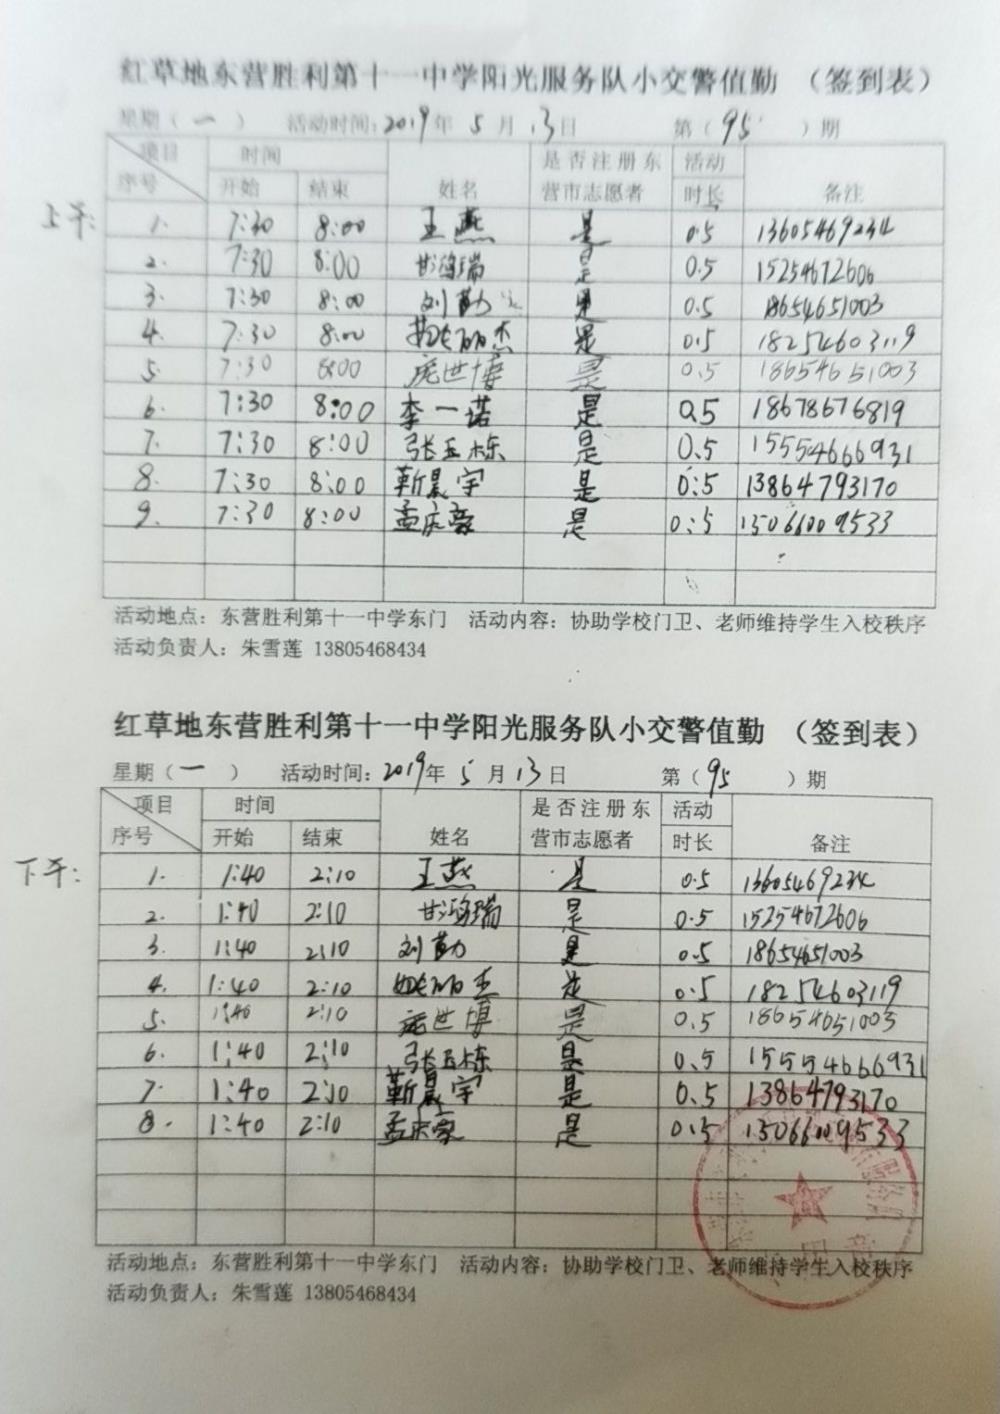 红草地东营胜利第十一中学阳光服务队小交警值勤 （签到表）
星期（一 ） 活动时间：2019年 5 月 13日 第（95 ）期
项目 时间 是否注册东 活动
序号 开始 结束 姓名 营市志愿者 时长 备注
上午：
1. 7:30 8:00 王燕 是 0.5 13605469234
2. 7:30 8:00 甘鸿瑞 是 0.5 15254672606
3. 7:30 8:00 刘勤 是 0.5 18654651003
4. 7:30 8:00 丽杰 是 0.5 18254603119
5. 7:30 8:00 庞世博 是 0.5 18654651003
6. 7:30 8:00 李一诺 是 0.5 18678676819
7. 7:30 8:00 张玉栋 是 0.5 15554666931
8. 7:30 8:00 靳晨宇 是 0.5 13864793170
9. 7:30 8:00 孟庆豪 是 0.5 15066009533
活动地点：东营胜利第十一中学东门 活动内容：协助学校门卫、老师维持学生入校秩序
活动负责人：朱雪莲 13805468434
红草地东营胜利第十一中学阳光服务队小交警值勤 （签到表）
星期（一 ） 活动时间：2019年 5 月 13日 第（95 ）期
项目 时间 是否注册东 活动
序号 开始 结束 姓名 营市志愿者 时长 备注
下午：
1. 1:40 2:10 王燕 是 0.5 13605469234
2. 1:40 2:10 甘鸿瑞 是 0.5 15254672606
3. 1:40 2:10 刘勤 是 0.5 18654651003
4. 1:40 2:10 丽杰 是 0.5 18254603119
5. 1:40 2:10 庞世博 是 0.5 18654651003
6. 1:40 2:10 张玉栋 是 0.5 15554666931
7. 1:40 2:10 靳晨宇 是 0.5 13864793170
8. 1:40 2:10 孟庆豪 是 0.5 15066009533
活动地点：东营胜利第十一中学东门 活动内容：协助学校门卫、老师维持学生入校秩序
活动负责人：朱雪莲 13805468434